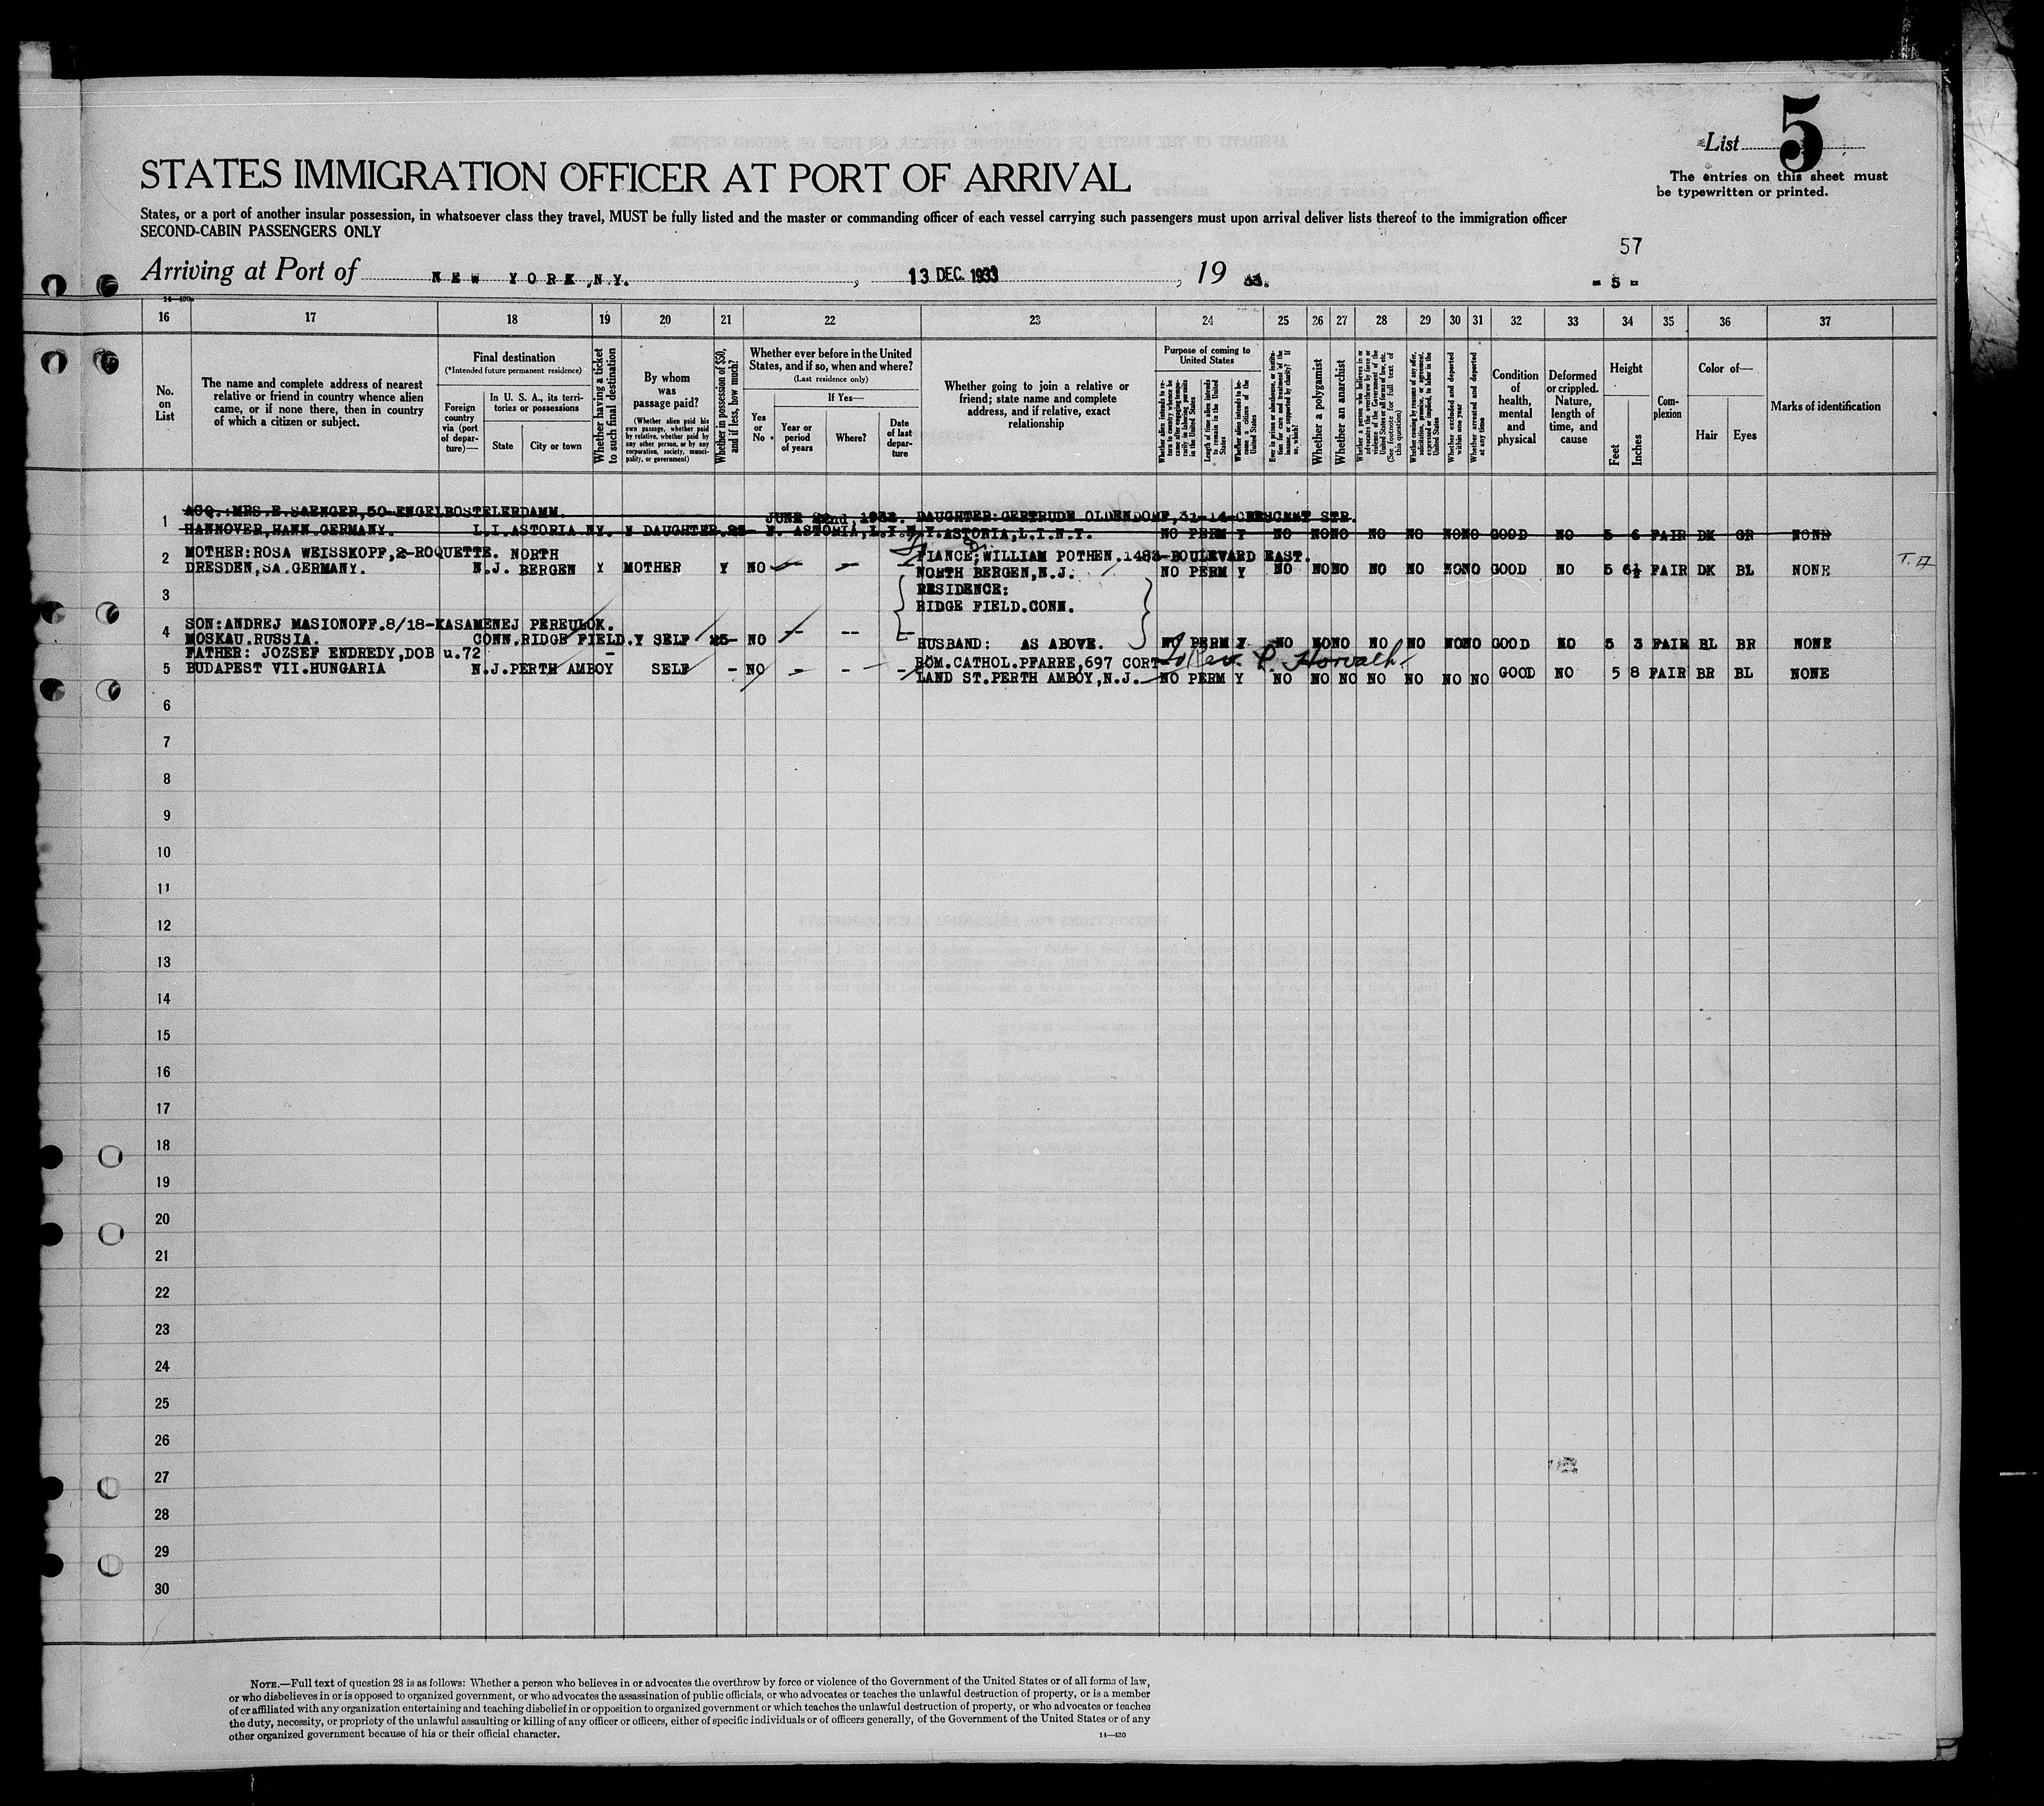 List 5
The entries on this sheet must
be typewritten or printed.
STATES IMMIGRATION OFFICER AT PORT OF ARRIVAL
States, or a port of another insular possession, in whatsoever class they travel, MUST be fully listed and the master or commanding officer of each vessel carrying such passengers must upon arrival deliver lists thereof to the immigration officer
SECOND-CABIN PASSENGERS ONLY
57
Arriving at Port of NEW YORK,N.Y. , 13 DEC. 1933 , 19 33.
- 5 -
14—430
16 17 18 19 20 21 22 23 24 25 26 27 28 29 30 31 32 33 34 35 36 37
No. on List
The name and complete address of nearest
relative or friend in country whence alien
came, or if none there, then in country
of which a citizen or subject.
Final destination
(*Intended future permanent residence)
Foreign
country
via (port
of depar-
ture)—
In U. S. A., its terri-
tories or possessions
State
City or town
Whether having a ticket
to such final destination
By whom
was
passage paid?
(Whether alien paid his
own passage, whether paid
by relative, whether paid by
any other person, or by any
corporation, society, munici-
pality, or government)
Whether in possession of $50,
and if less, how much?
Whether ever before in the United
States, and if so, when and where?
(Last residence only)
Yes
or
No
If Yes—
Year or
period
of years
Where?
Date
of last
depar-
ture
Whether going to join a relative or
friend; state name and complete
address, and if relative, exact
relationship
Purpose of coming to
United States
Length of time alien intends
to remain in the United
States
Whether alien intends to be-
come a citizen of the
United States
Whether a polygamist
Whether an anarchist
Whether excluded and deported
within one year
Whether arrested and deported
at any time
Condition
of
health,
mental
and
physical
Deformed
or crippled.
Nature,
length of
time, and
cause
Height
Feet
Inches
Com-
plexion
Color of—
Hair
Eyes
Marks of identification
1
ACQ.:MRS.E.SAENGER,50-ENGELBOSTELERDAMM. JUNE 22nd,1933. DAUGHTER:GERTRUDE OLDENDORF,31-14-CRESCENT STR.
HANNOVER,HANN.GERMANY. L.I.ASTORIA NY. Y DAUGHTER.25- Y. ASTORIA,L.I.N.Y. ASTORIA,L.I.N.Y. NO PERM Y NO NO NO NO NO NO NO GOOD NO 5 6 FAIR DK GR NONE
2
MOTHER:ROSA WEISSKOPF,2-ROQUETTE. NORTH FIANCE;WILLIAM POTHEN.1483-BOULEVARD EAST.
DRESDEN,SA.GERMANY. N.J. BERGEN Y MOTHER Y NO — — — NORTH BERGEN,N.J. NO PERM Y NO NO NO NO NO NO NO GOOD NO 5 6½ FAIR DK BL NONE
3
RESIDENCE:
RIDGE FIELD.CONN.
4
SON:ANDREJ MASIONOFF.8/18-KASAMENEJ PEREULOK.
MOSKAU.RUSSIA. CONN.RIDGE FIELD.Y SELF 25- NO -- -- -- HUSBAND: AS ABOVE. NO PERM Y NO NO NO NO NO NO NO GOOD NO 5 3 FAIR BL BR NONE
5
FATHER: JOZSEF ENDREDY,DOB u.72 - RÖM.CATHOL.PFARRE,697 CORT- Rev. P. Horvath
BUDAPEST VII.HUNGARIA N.J.PERTH AMBOY SELF - NO - - - LAND ST.PERTH AMBOY,N.J. NO PERM Y NO NO NO NO NO NO NO GOOD NO 5 8 FAIR BR BL NONE
6
7
8
9
10
11
12
13
14
15
16
17
18
19
20
21
22
23
24
25
26
27
28
29
30
NOTE.—Full text of question 28 is as follows: Whether a person who believes in or advocates the overthrow by force or violence of the Government of the United States or of all forms of law,
or who disbelieves in or is opposed to organized government, or who advocates the assassination of public officials, or who advocates or teaches the unlawful destruction of property, or is a member
of or affiliated with any organization entertaining and teaching disbelief in or opposition to organized government or which teaches the unlawful destruction of property, or who advocates or teaches
the duty, necessity, or propriety of the unlawful assaulting or killing of any officer or officers, either of specific individuals or of officers generally, of the Government of the United States or of any
other organized government because of his or their official character.
14—430